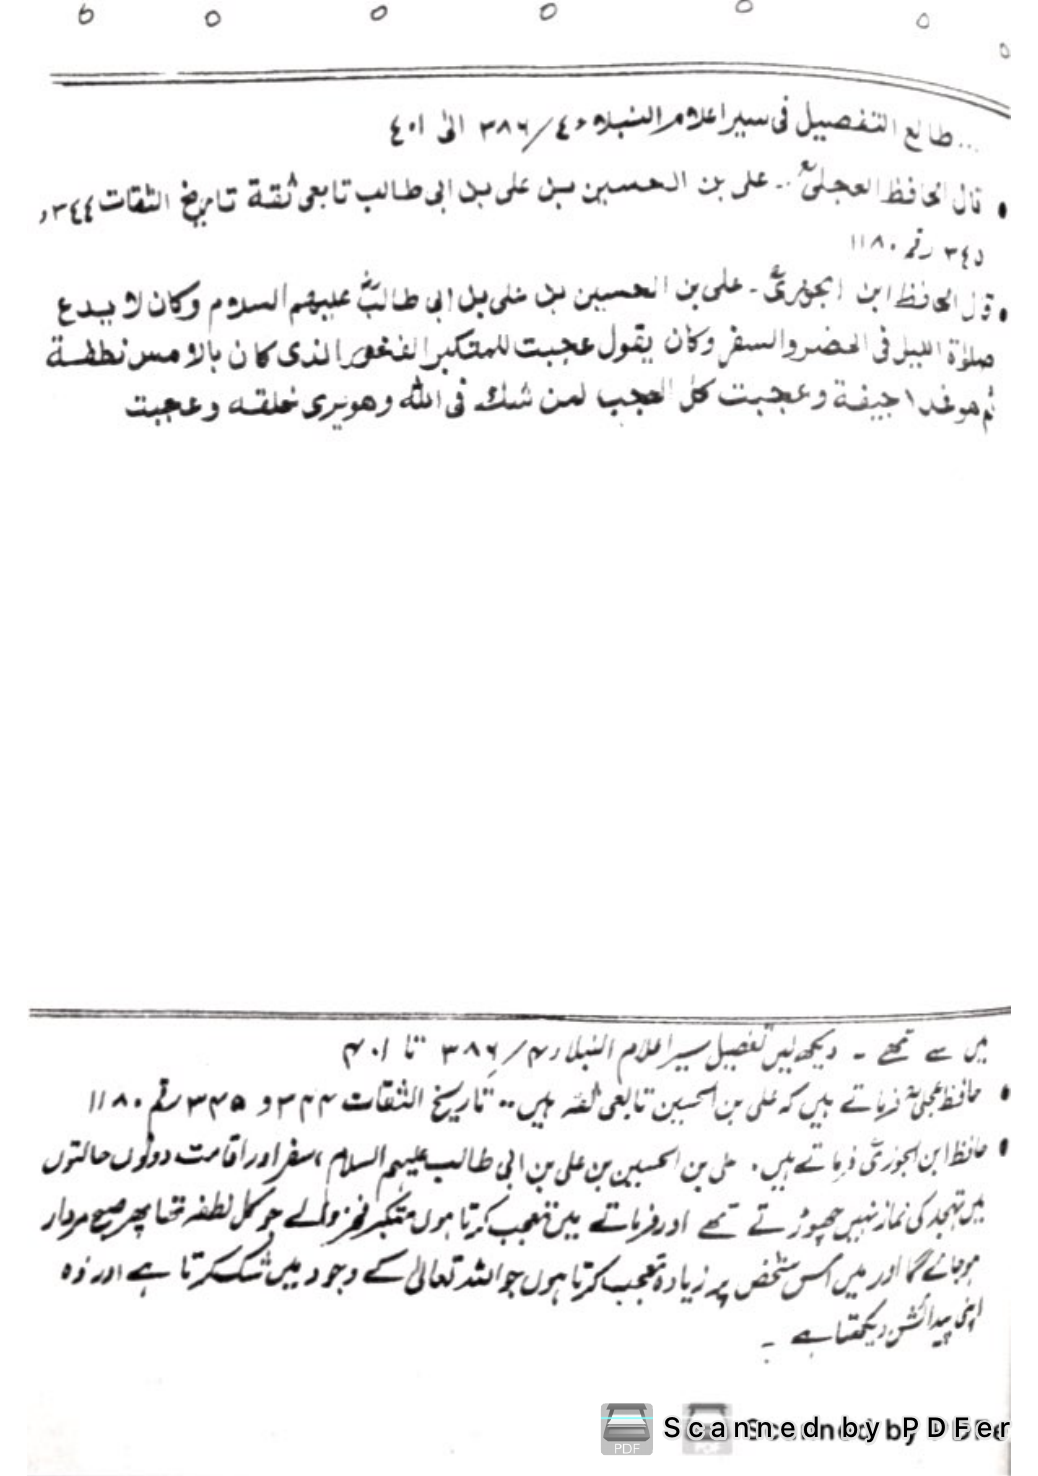 ... طالع التفصيل فی سیر اعلام النبلاء ٤/٣٨٦ الی ٤٠١
• قال الحافظ العجلیؒ .. علی بن الحسین بن علی بن ابی طالب تابعی ثقة تاریخ الثقات ٣٤٤ و
٣٤٥ رقم ١١٨٠
• قال الحافظ ابن الجوزیؒ ـ علی بن الحسین بن علی بن ابی طالبؓ علیہم السلام وکان لا یدع
صلوٰۃ اللیل فی الحضر والسفر وکان یقول عجبت للمتکبر الفخور الذی کان بالامس نطفة
ثم هو غدا جیفة وعجبت کل العجب لمن شك فی الله وهو یری خلقه وعجبت
میں سے تھے ۔ دیکھ لیں تفصیل سیر اعلام النبلاء ۴/۳۸۶ تا ۴۰۱
• حافظ عجلیؒ فرماتے ہیں کہ علی بن الحسین تابعی ثقہ ہیں .. تاریخ الثقات ۳۴۴ و ۳۴۵ رقم ۱۱۸۰
• حافظ ابن الجوزیؒ فرماتے ہیں ۔ علی بن الحسین بن علی بن ابی طالب علیہم السلام ، سفر اور اقامت دونوں حالتوں
میں تہجد کی نماز نہیں چھوڑتے تھے اور فرماتے میں تعجب کرتا ہوں متکبر فخر والے جو کل نطفہ تھا پھر صبح مردار
ہو جائے گا اور میں اس شخص پر زیادہ تعجب کرتا ہوں جو اللہ تعالیٰ کے وجود میں شک کرتا ہے اور وہ
اپنی پیدائش دیکھتا ہے ۔
Scanned by PDFer
PDF